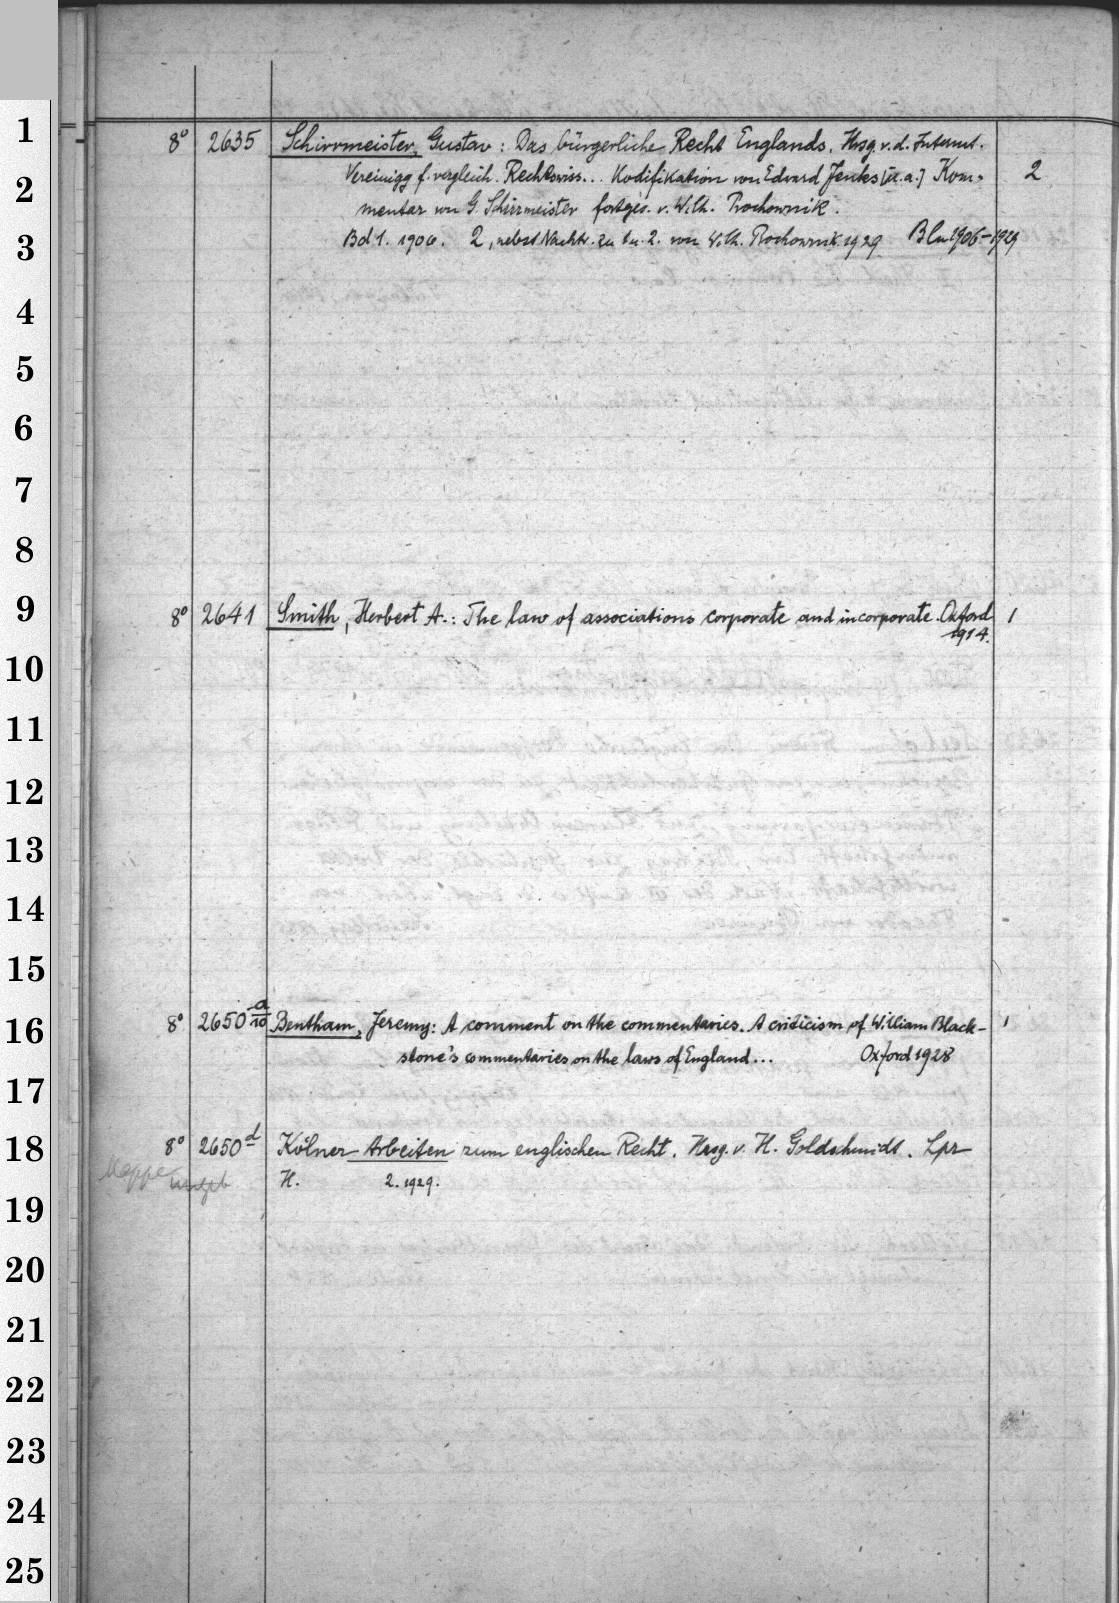 1
8° 2635 Schirrmeister, Gustav: Das bürgerliche Recht Englands. Hrsg. v. d. Internat.
2
Vereinigg f. vergleich. Rechtswiss... Kodifikation von Edward Jenks [u. a.] Kom- 2
mentar von G. Schirrmeister fortges. v. Wilh. Prochownik.
3
Bd 1. 1906. 2, nebst Nachtr. zu bu. 2. von Wilh. Prochownik 1929. Bln 1906-1929
4
5
6
7
8
9
8° 2641 Smith, Herbert A.: The law of associations corporate and incorporate. Oxford 1
1914.
10
11
12
13
14
15
16
8° 2650 a/10 Bentham, Jeremy: A comment on the commentaries. A criticism of William Black- 1
stone's commentaries on the laws of England... Oxford 1928
17
18
8° 2650 d Kölner Arbeiten zum englischen Recht. Hrsg. v. H. Goldschmidt. Lpz
Mappe
H. 2. 1929.
19
20
21
22
23
24
25